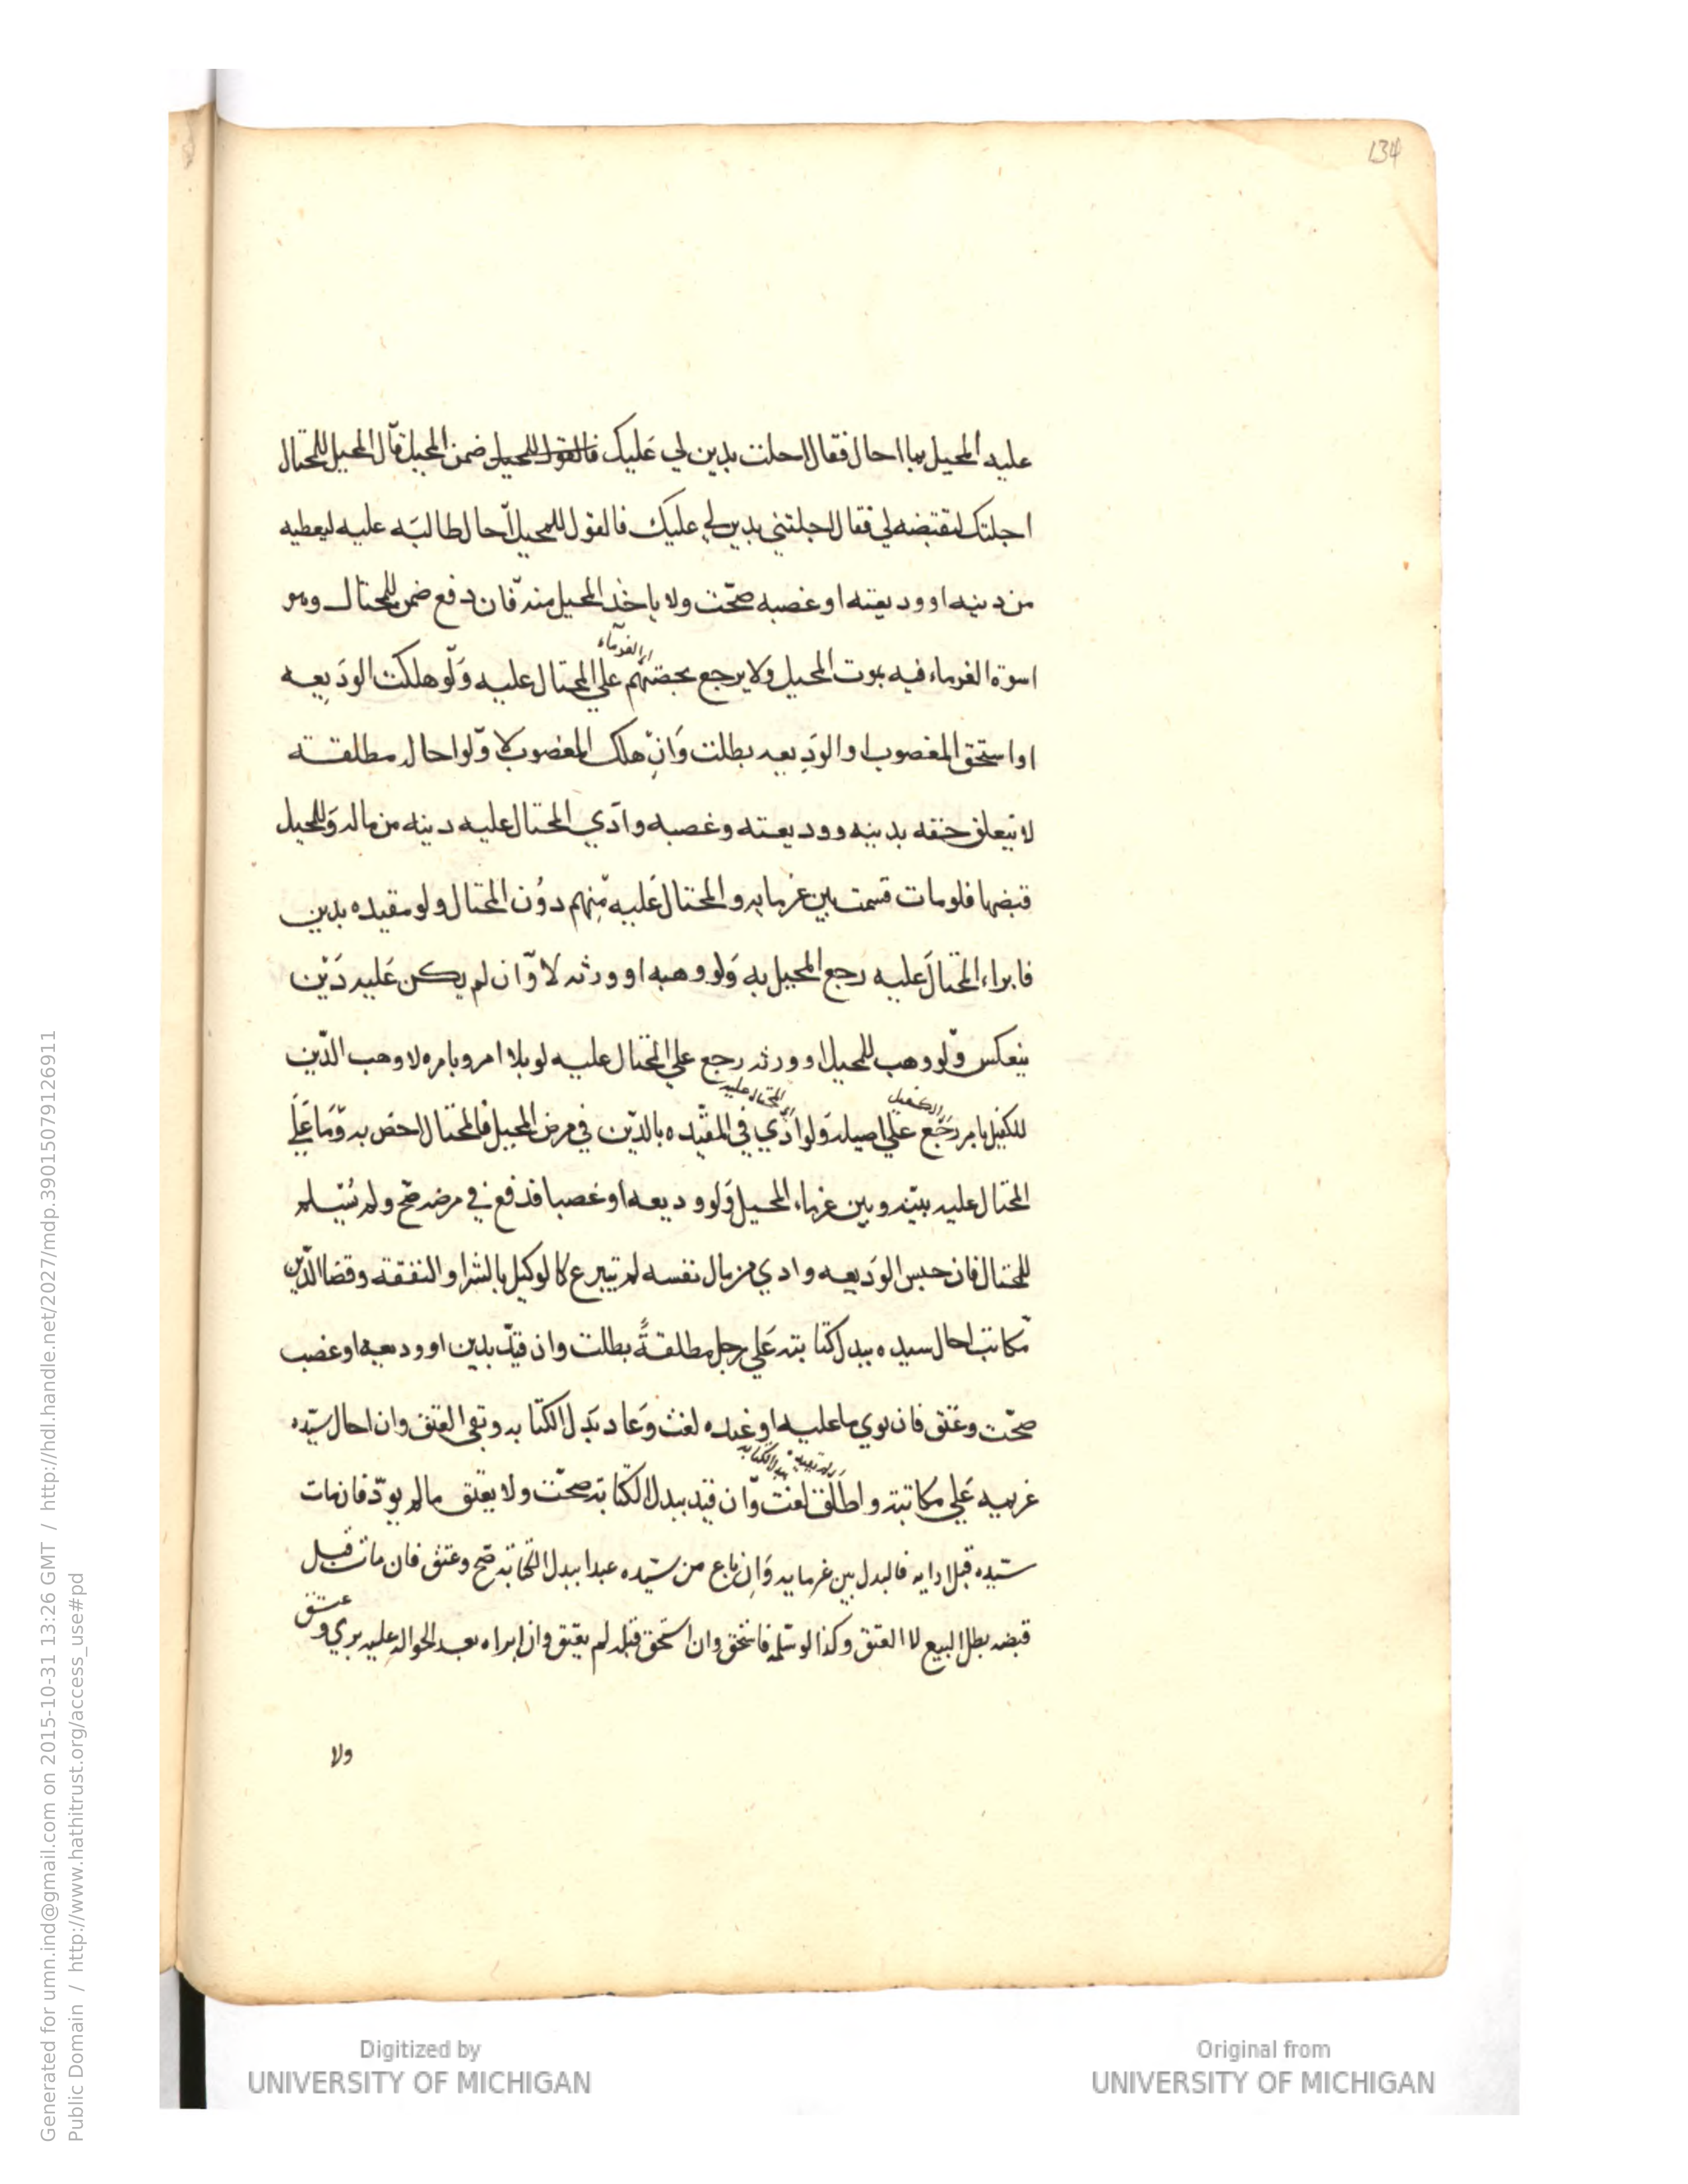 134
عليه المحيل بما احال فقال احلت بدين لي عَليك فالقول للمحيل ضمن المحيل قال المحيل للمحتال
احلتك لتقبضه لي فقال احلتني بدين لي عليك فالقول للمحيل احال طالبَه عليه ليعطيه
من دينه او وديعته او غصبه صحّت ولا ياخذ المحيل منه فان دفع ضمن للمحتال وهو
اسوة الغرماء فيه بموت المحيل ولا يرجع بحصتهم علي المحتال عليه وَلو هلكت الودَيعه
اي الغرماء
او استحق المغصوب او الودِيعه بطلت وَانِ هلك المغصوب لا وّلو احال مطلقته
لا يتعلق حقه بدينه ووديعته وغصبه وادَي المحتال عليه دينه من ماله وَللمحيل
قبضها فلو مات قسمت بين غرمايه والمحتال عَليه مِنهم دوُن المحتال ولو مقيده بدين
فابراء المحتالَ عليه رجع المحيل به وَلو وهبه او ورثه لا وّان لم يكن عَليه دَيْن
ينعكس وّلو وهب للمحيل او ورثه رجع علي المحتال عليه لو بلا امر وبامره لا وهب الدّين
اي الكفيل
اي المحتال عليه
للكفيل بامر رجَع علي اصيله وَلو ادّي في المقيّده بالدّين في مرض المحيل فالمحتال احق به وّمَا عَلَي
المحتال عليه بينه وبين غرماء المحيل وَلو وديعه او غصبا فدفع في مرضه صّح ولم يُسّلم
للمحتال فان حبس الودَيعه وادي من مال نفسه لم يتبرع كالوكيل بالشرا والنفقة وقضا الدّين
مّكاتب احال سيده ببدل كتابته عَلي رجل مطلقةً بطلت وان قيّد بدين او وديعه او غصب
صحّت وعَتق فان نوي ما عليه او عنده لغت وَعاد بَدل الكتابه وبقي العتق وان احال سيّده
غريمه عَلي مكاتبه واطلق لغت وّان قيد ببدل الكتابة صحّت ولا يعتق مالم يودّ فان مات
سّيده قبل ادايه فالبدل بين غرمايه وَاِن باع من سّيده عبدا ببدل الكتابة صّح وعتق فان مات قبل
قبضه بطل البيع لا العتق وكذا لو سّلمه فاستحق وان استحق قبله لم يعتق وان ابراه بعد الحواله عليه بري وعتق
ولا
Generated for umn.ind@gmail.com on 2015-10-31 13:26 GMT / http://hdl.handle.net/2027/mdp.39015079126911
Public Domain / http://www.hathitrust.org/access_use#pd
Digitized by
UNIVERSITY OF MICHIGAN
Original from
UNIVERSITY OF MICHIGAN